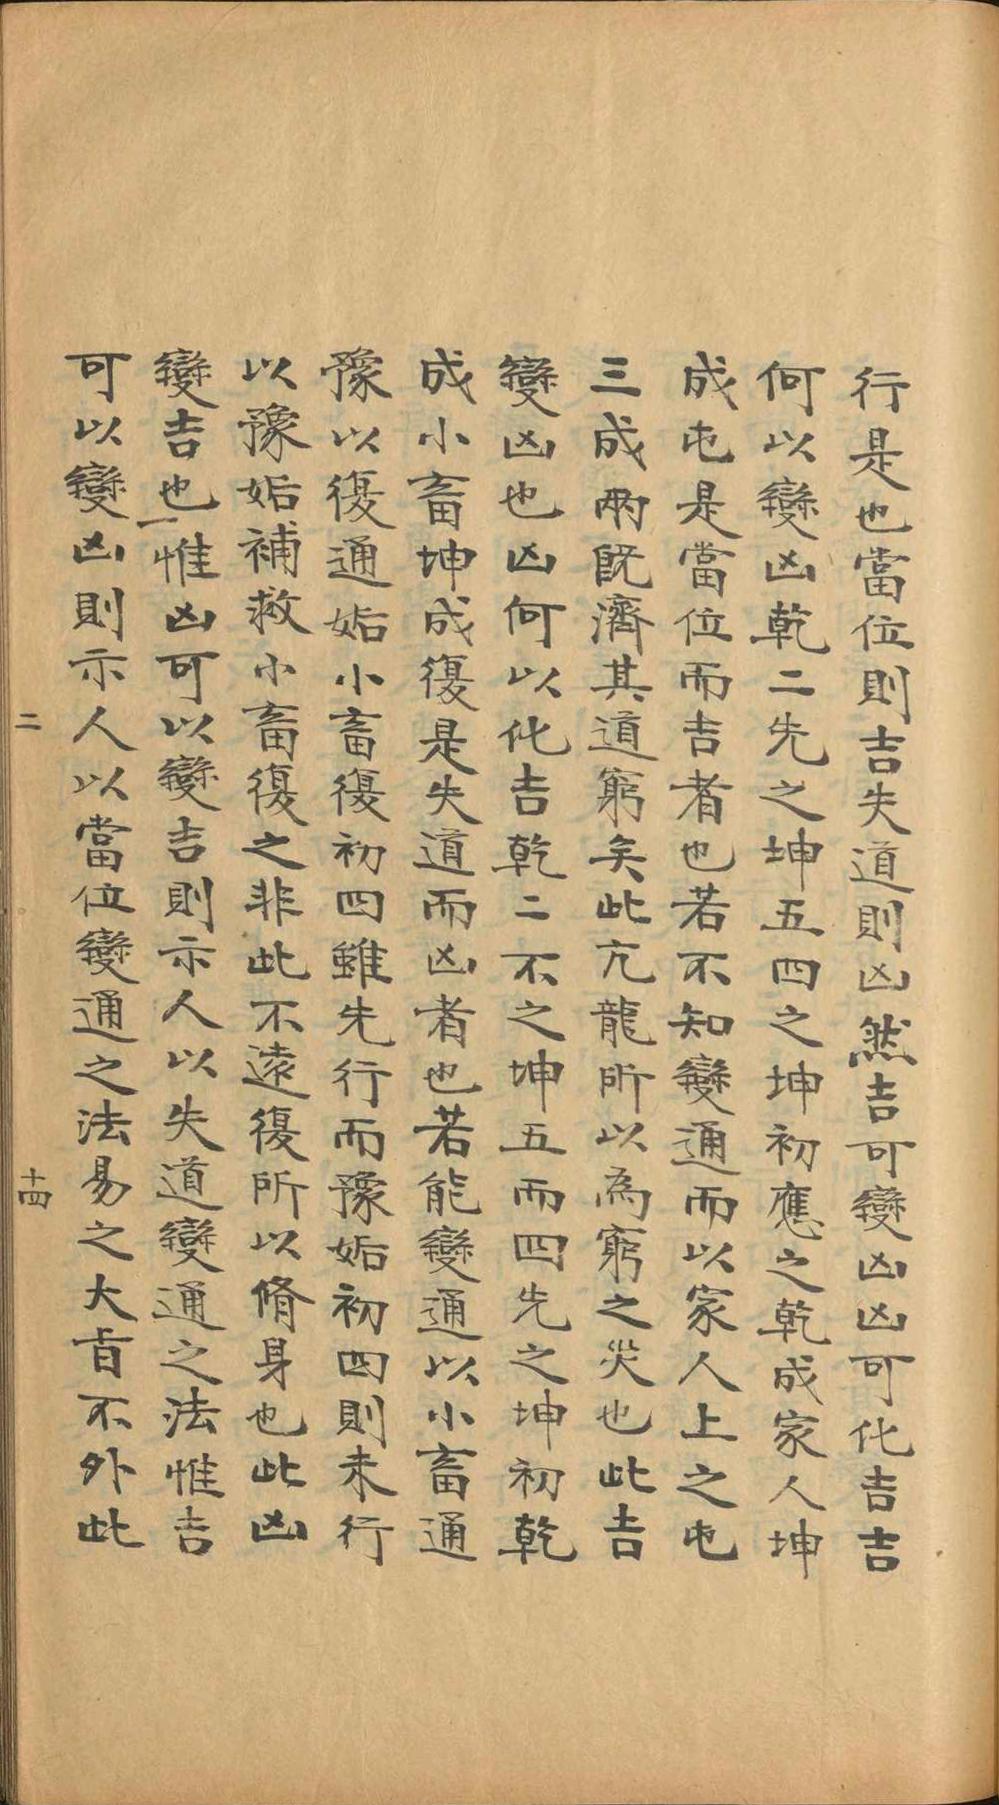 行是也當位則吉失道則凶然吉可變凶凶可化吉吉
何以變凶乾二先之坤五四之坤初應之乾成家人坤
成屯是當位而吉者也若不知變通而以家人上之屯
三成兩既濟其道窮矣此亢龍所以為窮之災也此吉
變凶也凶何以化吉乾二不之坤五而四先之坤初乾
成小畜坤成復是失道而凶者也若能變通以小畜通
豫以復通姤小畜復初四雖先行而豫姤初四則未行
以豫姤補救小畜復之非此不遠復所以脩身也此凶
變吉也惟凶可以變吉則示人以失道變通之法惟吉
可以變凶則示人以當位變通之法易之大旨不外此
二
十四